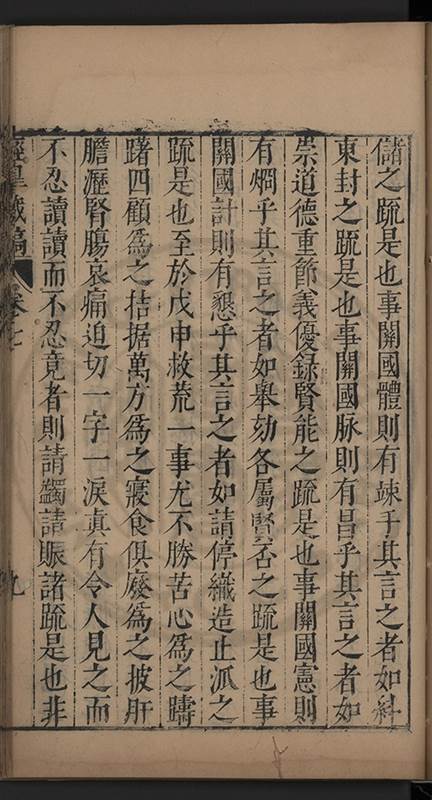 儲之䟽是也事關國體則有竦乎其言之者如紏
東封之䟽是也事關國脉則有昌乎其言之者如
崇道德重節義優錄賢能之䟽是也事關國憲則
有烱乎其言之者如舉劾各屬賢否之䟽是也事
關國計則有懇乎其言之者如請停織造止派之
䟽是也至於戊申救荒一事尤不勝苦心爲之躊
躇四顧爲之拮据萬方爲之寢食俱廢爲之披肝
膽瀝腎腸哀痛迫切一字一淚眞有令人見之而
不忍讀讀而不忍竟者則請蠲請賑諸䟽是也非
臯藏稿 卷七 九